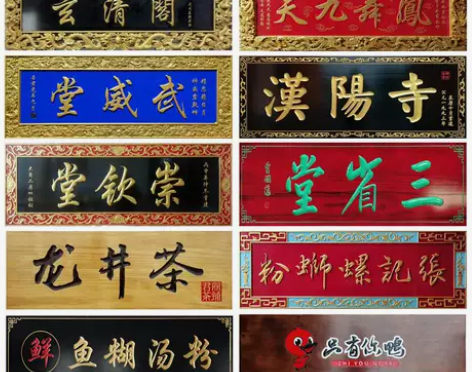 玄清閣
鳳舞九天
武威堂
漢陽寺
崇欽堂
三省堂
龙井茶
張記螺螄粉
鲜 鱼糊汤粉
只有你鸭